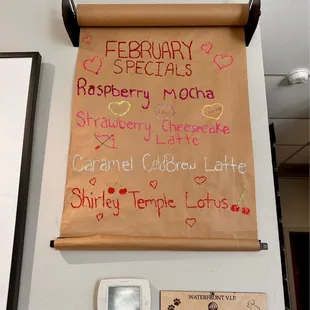 FEBRUARY
SPECIALS
Raspberry Mocha
Strawberry Cheesecake
Latte
Caramel ColdBrew Latte
Shirley Temple Lotus
WATERFRONT V.I.P.